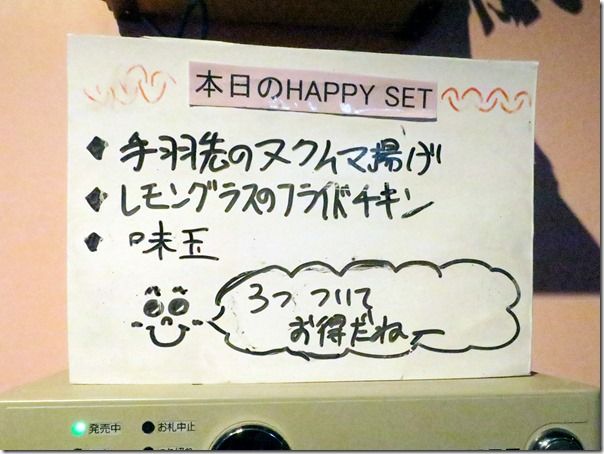 本日のHAPPY SET
◆ 手羽先のヌクムマ揚げ
◆ レモングラスのフライドチキン
◆ 味玉
3つ ついて
お得だねー
発売中 ●お札中止